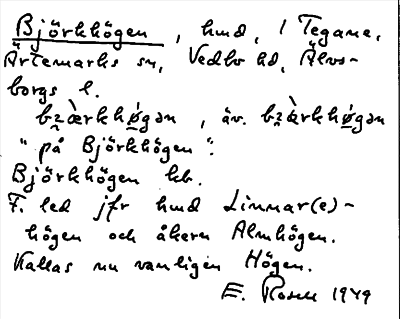 Björkhögen, hmd, i Tegane,
Ärtemarks sn, Vedbo hd, Älvs-
borgs l.
bz̨æ̀rkhø̱gən, äv. bz̨àrkhø̱gən
"på Björkhögen":
Björkhögen kb.
F. led jfr hmd Linnar(e)-
högen och åkern Almhögen.
Kallas nu vanligen Högen.
E. 1949